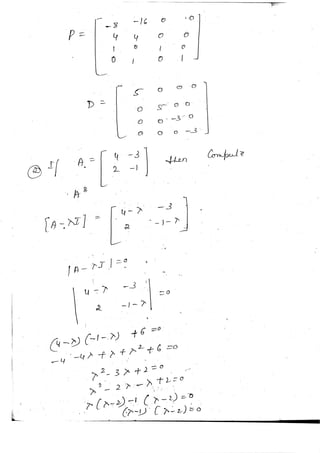 P = [ -8 -16 0 0
4 4 0 0
1 0 1 0
0 1 0 1 ]
D = [ 5 0 0 0
0 5 0 0
0 0 -3 0
0 0 0 -3 ]
② If A = [ 4 -3
2 -1 ] then Compute
A⁸
[A-λI] = [ 4-λ -3
2 -1-λ ]
|A-λI| = 0
| 4-λ -3
2 -1-λ | = 0
(4-λ) (-1-λ) +6 = 0
-4 -4λ + λ + λ² + 6 = 0
λ² - 3λ + 2 = 0
λ² - 2λ - λ + 2 = 0
λ(λ-2) -1 (λ-2) = 0
(λ-1) (λ-2) = 0